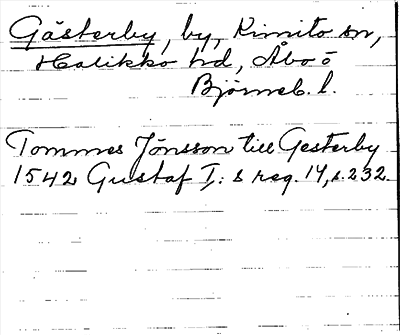 Gästerby, by, Kimito sn,
Halikko hd, Åbo o
Björneb. l.
Tommes Jönsson till Gesterby
1542 Gustaf I: s reg. 14, s. 232.